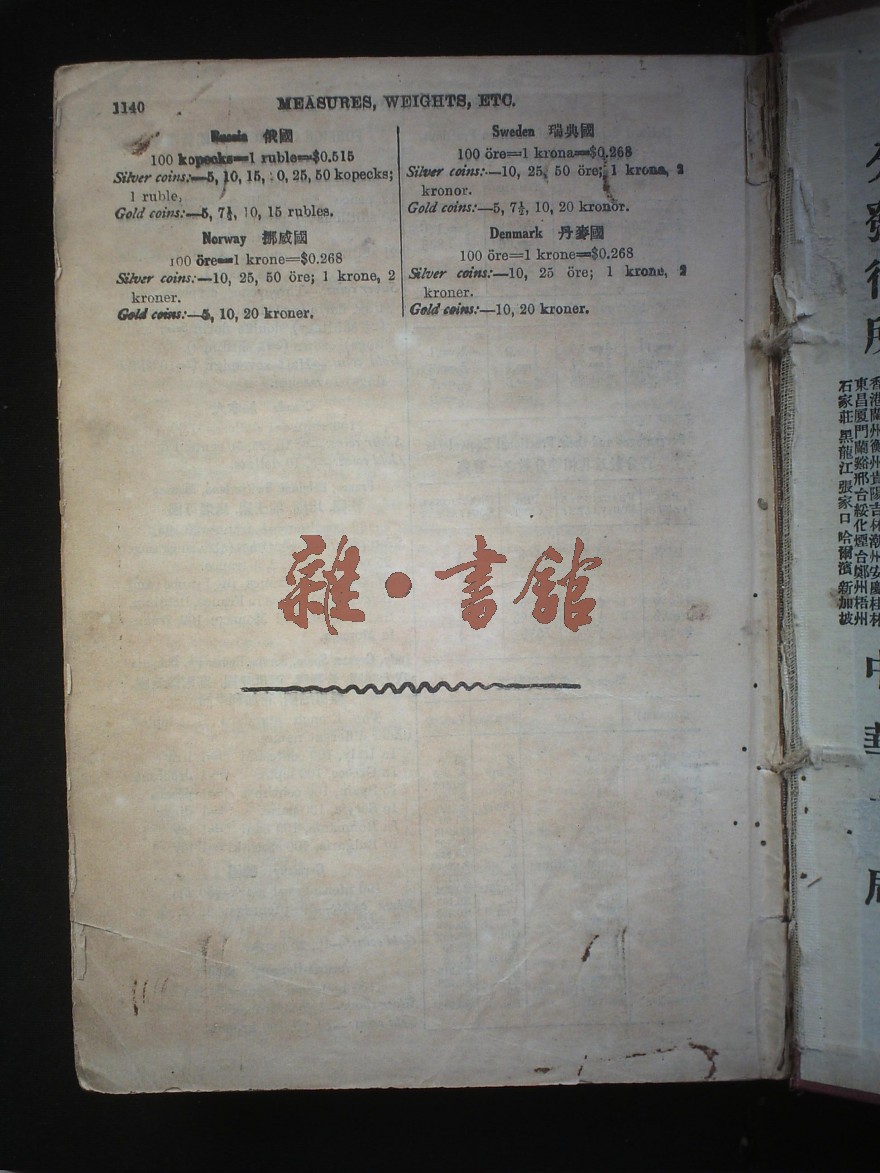 1140
MEASURES, WEIGHTS, ETC.
Russia 俄國
100 kopecks=1 ruble=$0.515
Silver coins:—5, 10, 15, 20, 25, 50 kopecks;
1 ruble,
Gold coins:—5, 7½, 10, 15 rubles.
Norway 挪威國
100 öre=1 krone=$0.268
Silver coins:—10, 25, 50 öre; 1 krone, 2
kroner.
Gold coins:—5, 10, 20 kroner.
Sweden 瑞典國
100 öre=1 krona=$0.268
Silver coins:—10, 25, 50 öre; 1 krona, 2
kronor.
Gold coins:—5, 7½, 10, 20 kronor.
Denmark 丹麥國
100 öre=1 krone=$0.268
Silver coins:—10, 25 öre; 1 krone, 2
kroner.
Gold coins:—10, 20 kroner.
雜·書館
香港蘭州衡州貴陽吉林潮州安慶桂林
東昌厦門蘭谿邢台綏化煙台鄭州梧州
石家莊黑龍江張家口哈爾濱新加坡